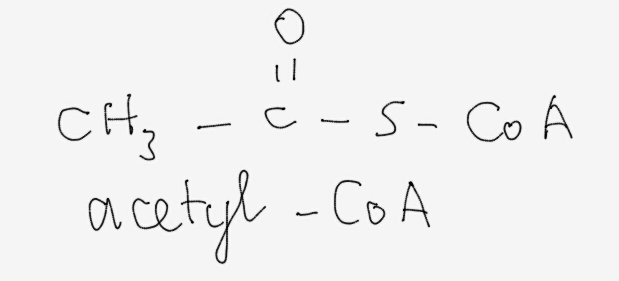 O
||
CH₃ - C - S - CoA
acetyl - CoA